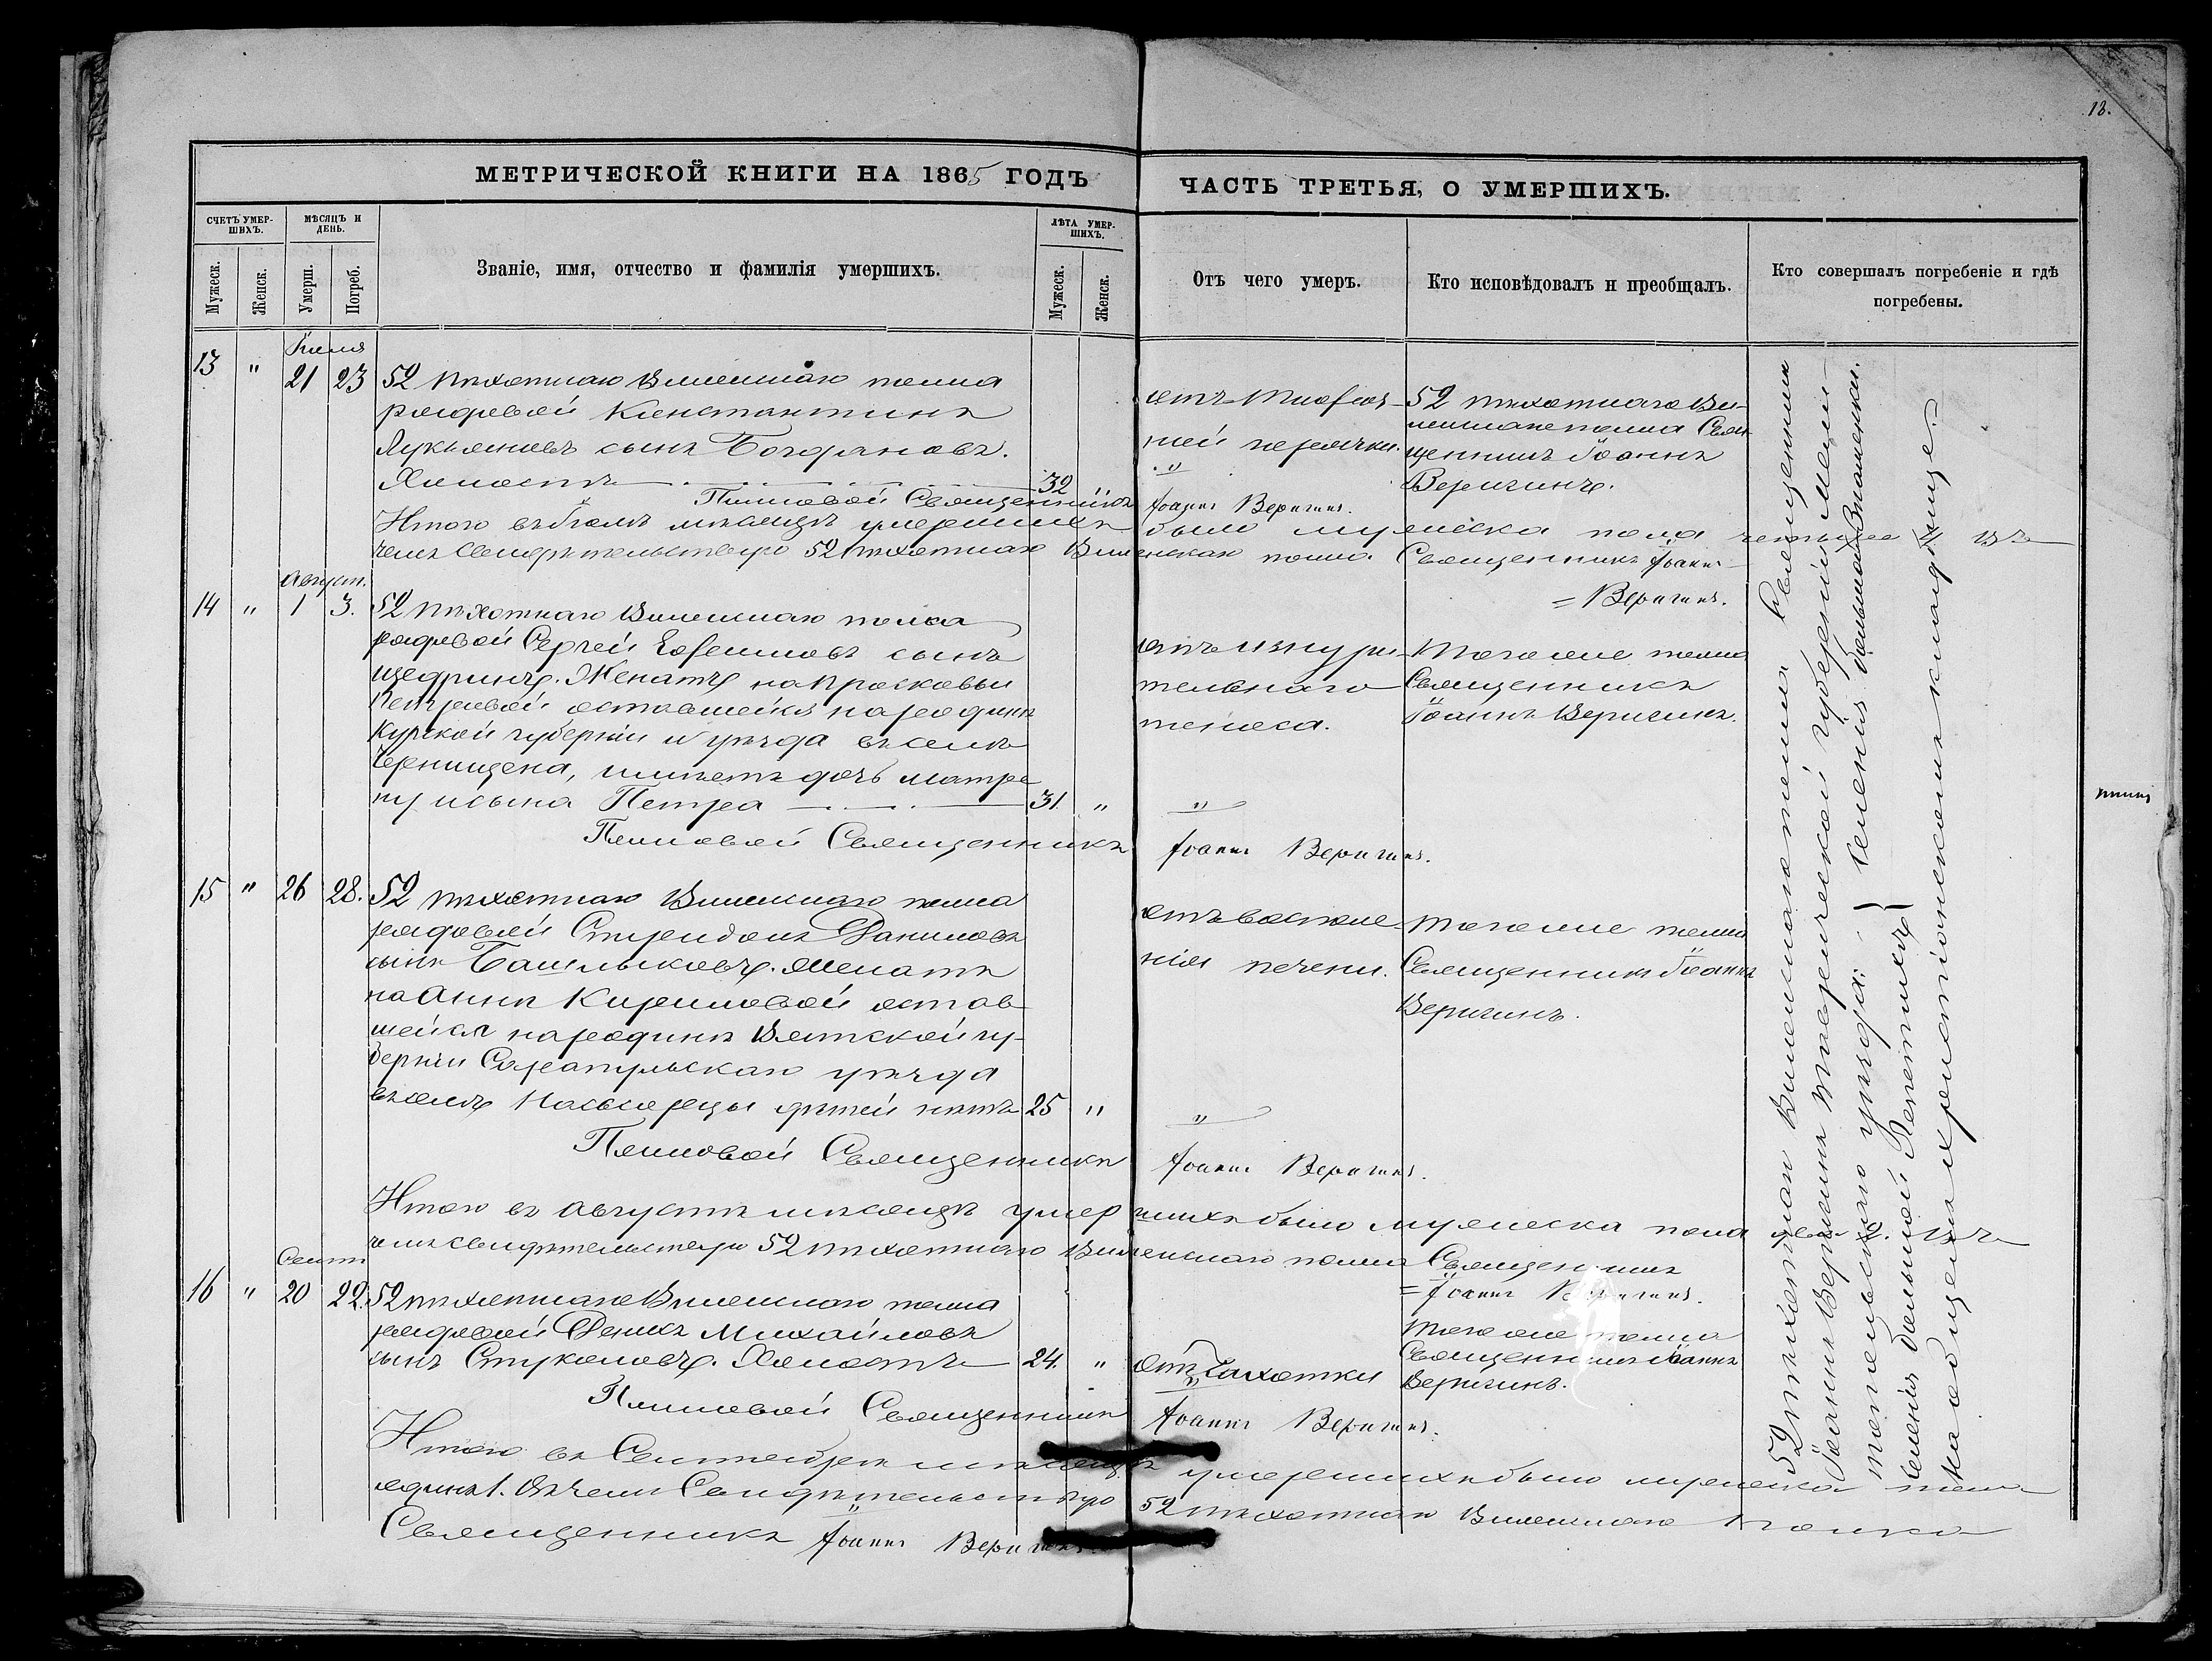 13.
МЕТРИЧЕСКОЙ КНИГИ НА 1865 ГОДЪ
ЧАСТЬ ТРЕТЬЯ, О УМЕРШИХЪ.
СЧЕТЪ УМЕР-
ШИХЪ.
МѢСЯЦЪ И
ДЕНЬ.
Званіе, имя, отчество и фамилія умершихъ.
ЛѢТА УМЕР-
ШИХЪ.
Мужеск.
Женск.
Умерш.
Погреб.
Мужеск.
Женск.
Отъ чего умеръ.
Кто исповѣдовалъ и преобщалъ.
Кто совершалъ погребеніе и гдѣ
погребены.
Іюля
13 " 21 23 52 пѣхотнаго Виленскаго полка
рядовой Константинъ
Лукьяновъ сынъ Богдановъ.
Холостъ 32 "
отъ тифоз-
ной горячки.
52 пѣхотнаго Ви-
ленскаго полка Свя-
щенникъ Іоаннъ
Веригинъ.
Полковой Священникъ Іоаннъ Веригинъ.
Итого въ Іюлѣ мѣсяцѣ умершихъ было мужеска пола четыре 4. въ
чемъ свидѣтельствую 52 пѣхотнаго Виленскаго полка Священникъ Іоаннъ
= Веригинъ.
Август.
14 " 1 3. 52 пѣхотнаго Виленскаго полка
рядовой Сергей Ефимовъ сынъ
Щедринъ. Женатъ на Прасковьи
Петровой оставшейся на родинѣ
Курской губерніи и уѣзда въ селѣ
имѣетъ дочь Матре
ну и сына Петра 31. "
отъ изнури-
тельнаго
поноса.
того же полка
Священникъ
Іоаннъ Веригинъ.
Полковой Священникъ Іоаннъ Веригинъ.
15 " 26 28. 52 пѣхотнаго Виленскаго полка
рядовой Спиридонъ Даниловъ
сынъ Башлыковъ. Женатъ
на Аннѣ Кириловой остав
шейся на родинѣ Вятской гу-
берніи Сарапульскаго уѣзда
въ селѣ дѣтей нѣтъ 25 "
отъ воспале-
нія печени.
того же полка
Священникъ Іоаннъ
Веригинъ.
Полковой Священникъ Іоаннъ Веригинъ.
Итого въ Августѣ мѣсяцѣ умершихъ было мужеска пола два 2. въ
чемъ свидѣтельствую 52 пѣхотнаго Виленскаго полка Священникъ
= Іоаннъ Веригинъ.
Сент.
16 " 20 22. 52 пѣхотнаго Виленскаго полка
рядовой Денисъ Михайловъ
сынъ Стукаловъ. Холостъ 24. "
Отъ Чахотки
того же полка
Священникъ Іоаннъ
Веригинъ.
Полковой Священникъ Іоаннъ Веригинъ.
Итого въ Сентябрѣ мѣсяцѣ умершихъ было мужеска пола
одинъ 1. въ чемъ Свидѣтельствую 52 пѣхотнаго Виленскаго полка
Священникъ Іоаннъ Веригинъ.
52 пѣхотнаго Виленскаго полка Священникъ
Іоаннъ Веригинъ Таврической губерніи Мели-
топольскаго уѣзда: } Селенія Большой Знаменки.
Селенія большой Лепетихѣ }
на общемъ христіонскомъ кладбище.